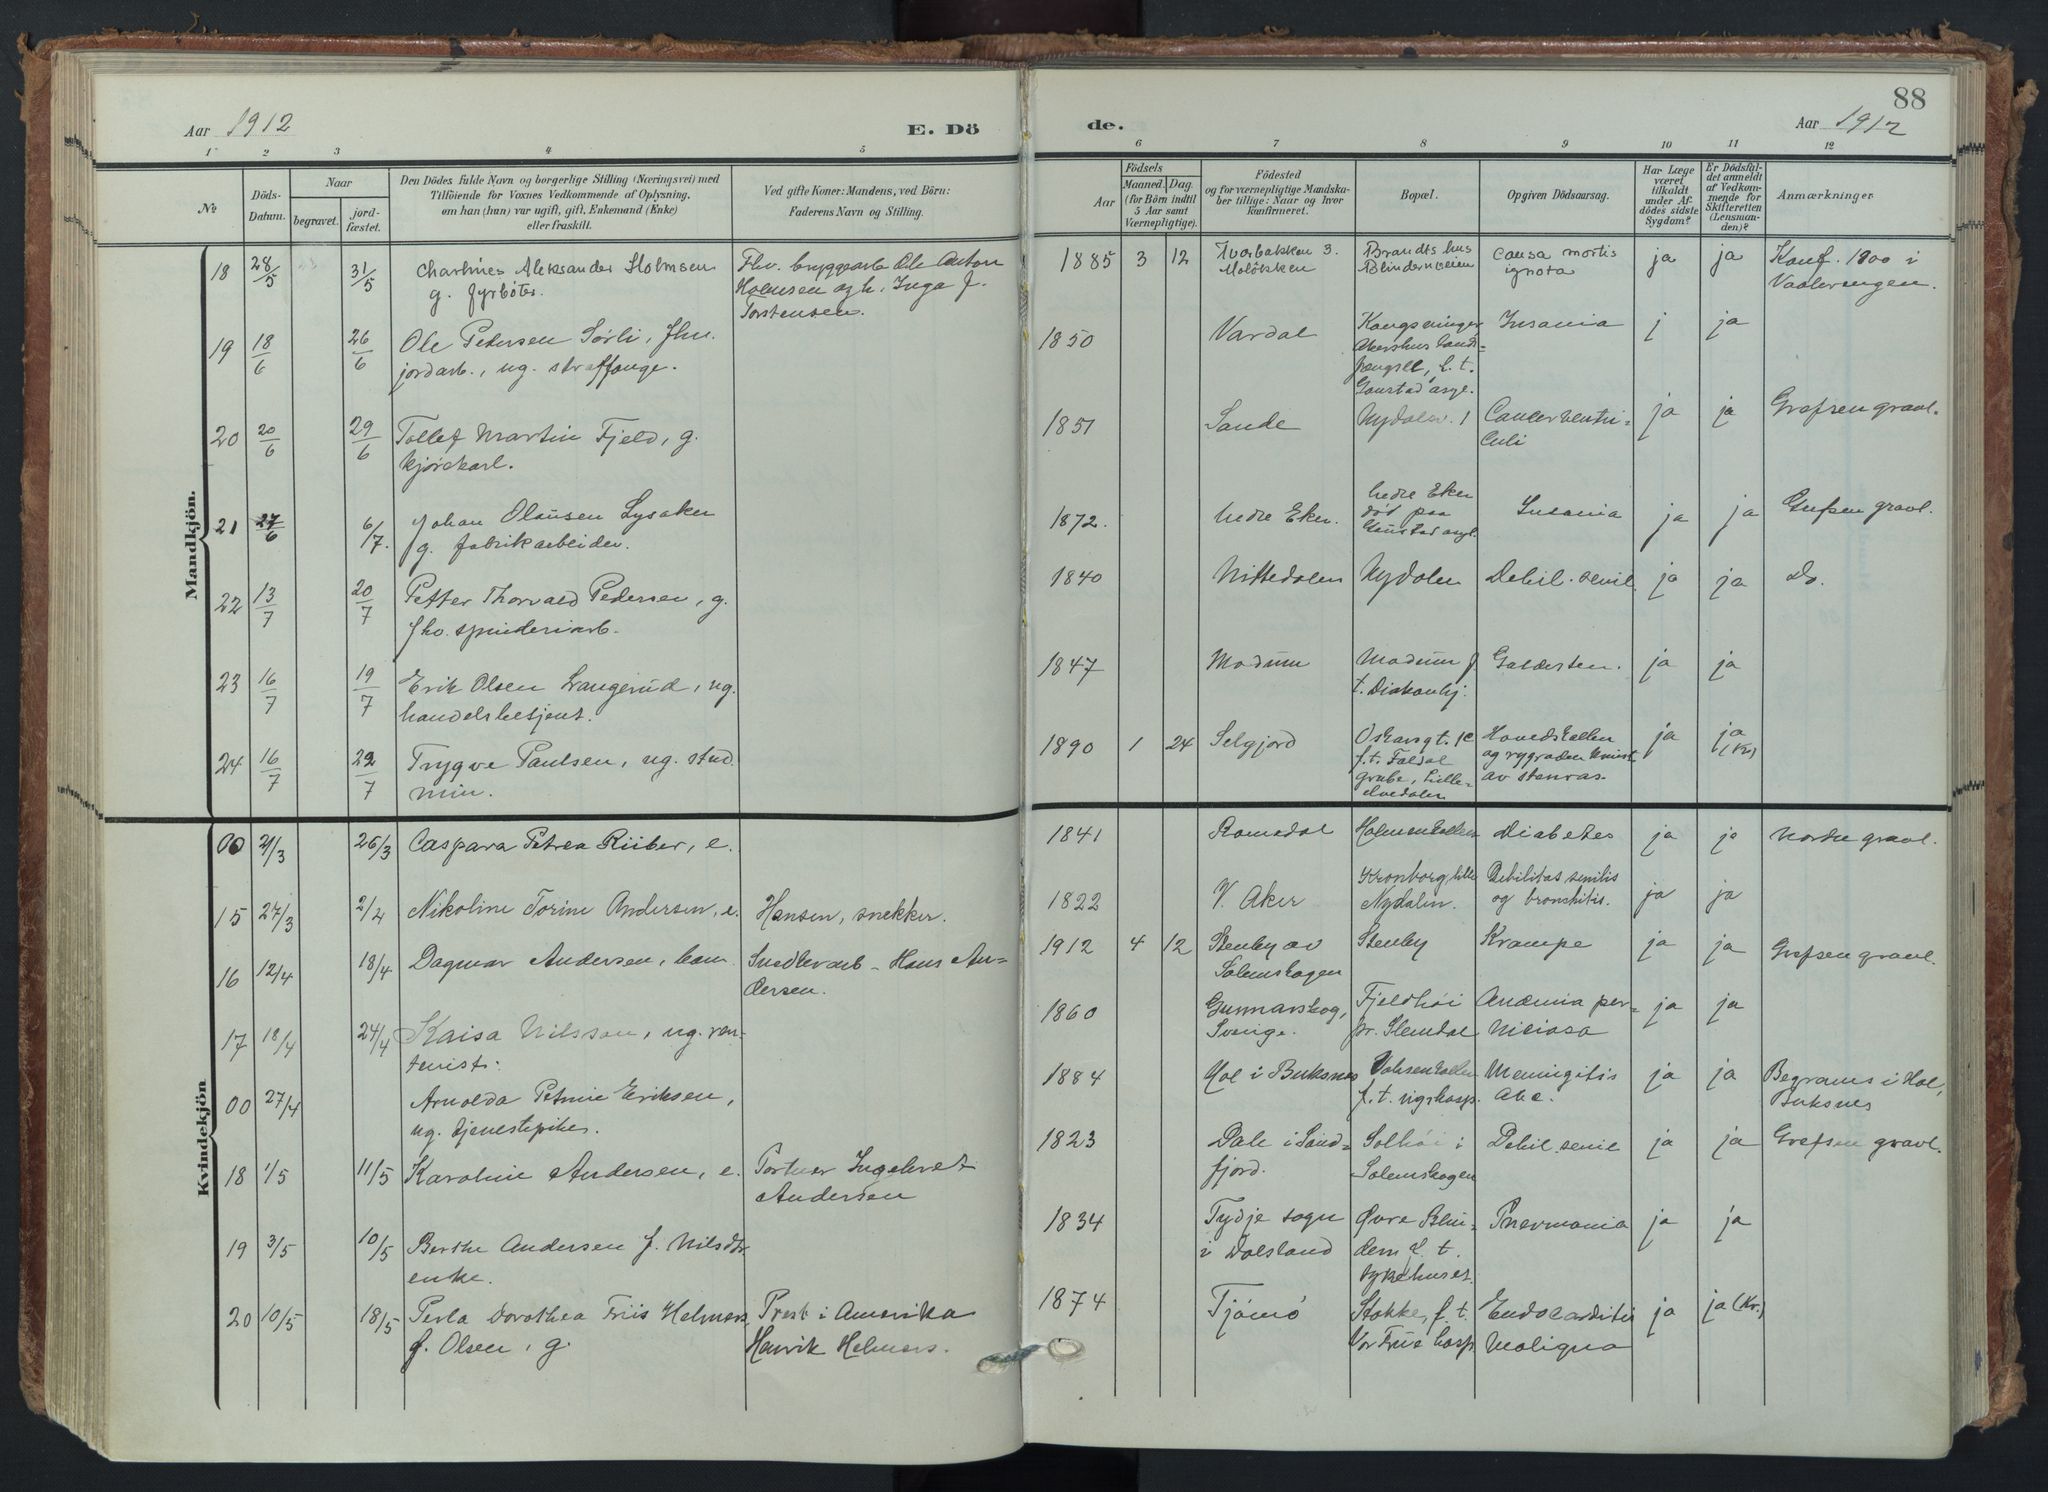 88
Aar 1912
E. Dö
de.
Aar 1912
1 2 3 4 5
6 7 8 9 10 11 12
No
Döds-
Datum.
Naar
begravet.
jord-
fæstet.
Den Dödes fulde Navn og borgerlige Stilling (Næringsvei) med
Tilföiende for Voxnes Vedkommende af Oplysning,
om han (hun) var ugift, gift, Enkemand (Enke)
eller fraskilt.
Ved gifte Koner: Mandens, ved Börn:
Faderens Navn og Stilling.
Födsels
Aar
Maaned. Dag.
(for Börn indtil
5 Aar samt
Værnepligtige).
Födested
og for værnepligtige Mandska-
ber tillige: Naar og hvor
konfirmeret.
Bopæl.
Opgiven Dödsaarsag.
Har Læge
været
tilkaldt
under Af-
dödes sidste
Sygdom?
Er Dödsfal-
det anmeldt
af Vedkom-
mende for
Skifteretten
(Lensman-
den)?
Anmærkninger
Mandkjön.
18 28/5 31/5 Aleksander Holmsen
g. fyrböter.
Fhv. bryggearb Ole Anton
Holmsen og h. Inga f.
Torstensen.
1885 3 12
Brandts hus
Blindernveien
causa mortis
ignota
ja ja
Konf. 1900 i
Vaalerengen.
19 18/6 26/6 Ole Pedersen Sørli, fhv.
jordarb., ug. straffange.
1850 Vardal
Kongsvinger
Akershus lands-
fængsel, f. t.
Gaustad asyl.
Insania
j ja
20 20/6 29/6 Tollef Martin Fjeld, g.
kjørekarl.
1851 Sande
Nydalen 1
Cancer ventri-
culi
ja ja
Grefsen gravl.
21 27/6 6/7. Johan Olausen Lysaker
g. fabrikarbeider.
1872. Nedre Eker.
Nedre Eker
død paa
Gaustad asyl.
Insania
ja ja
Grefsen gravl.
22 13/7 20/7 Petter Thorvald Pedersen, g.
fhv. spinderiarb.
1840 Nittedalen Nydalen Debil. senil.
ja ja Do.
23 16/7 19/7 Erik Olsen Langerud, ug.
handelsbetjent.
1847 Modum
Modum f.
t. Diakonhj.
Galdesten.
ja ja
24 16/7 22/7 Trygve Paulsen, ug. stud.
min.
1890 1 24 Selgjord
Oskarsgt.
f. t. Foldal
grube, Lille-
elvedalen
Hovedskallen
og rygraden knust
av stenras.
ja ja
(Kr)
Kvindekjön
00 21/3 26/3 Caspara Petrea Riiber, e.
1841 Romedal Holmenkollen Diabetes
ja ja Nordre gravl.
15 27/3 2/4 Nikoline Torine Andersen, e. Hansen, snekker.
1822 V. Aker
Kronborg, lille
Nydalen.
Debilitas senilis
og bronchitis.
ja ja
16 12/4 18/4 Dagmar Andersen, barn Snedkerarb. Hans An-
dersen.
1912 4 12 Stenby av
Solemskogen
Stenby Krampe
ja ja Grefsen gravl.
17 18/4 24/4 Kaisa Nilsson, ug. ren-
tenist.
1860 Gunnarskog,
Sverige.
Fjeldhöi
pr. Slemdal
Anæmia per-
niciosa
ja ja
00 27/4 Arnolda Petrine Eriksen,
ug. tjenestepike.
1884 Hol i Buksnes
Voksenkollen
f. t. rigshosp.
Meningitis
ja ja Begraves i Hol,
Buksnes
18 1/5 11/5 Karoline Andersen, e. Portner Ingebret
Andersen
1823 Dale i Sønd-
fjord.
Solhöi i
Solemskogen
Debil. senil
ja ja Grefsen gravl.
19 3/5 10/5 Berthe Andersen f. Nilsdtr.
enke.
1834 Tydje sogn
i Dalsland
Øvre Blin-
dern f. t.
sykehuset.
Pnevmonia
ja ja
20 10/5 18/5 Perla Dorothea Friis Helmers,
f. Olsen, g.
Prest i Amerika
Henrik Helmers.
1874 Tjømø
Stokke, f. t.
Vor Frue hosp.
Endocarditis
maligna
ja ja (Kr.)